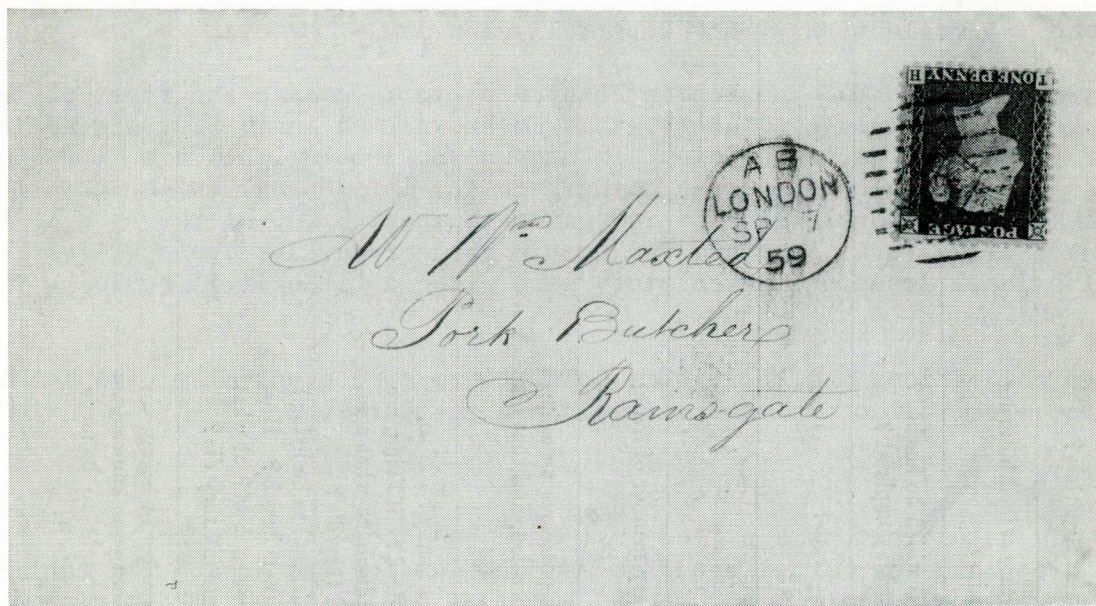 H ONE PENNY T
POSTAGE
A B
LONDON
SP 7
59
Mr Wm Maxted
Pork Butcher
Ramsgate